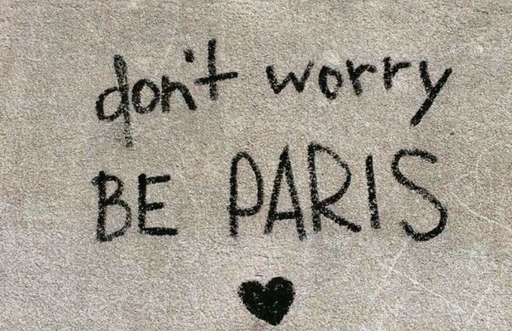 don't worry
BE PARIS